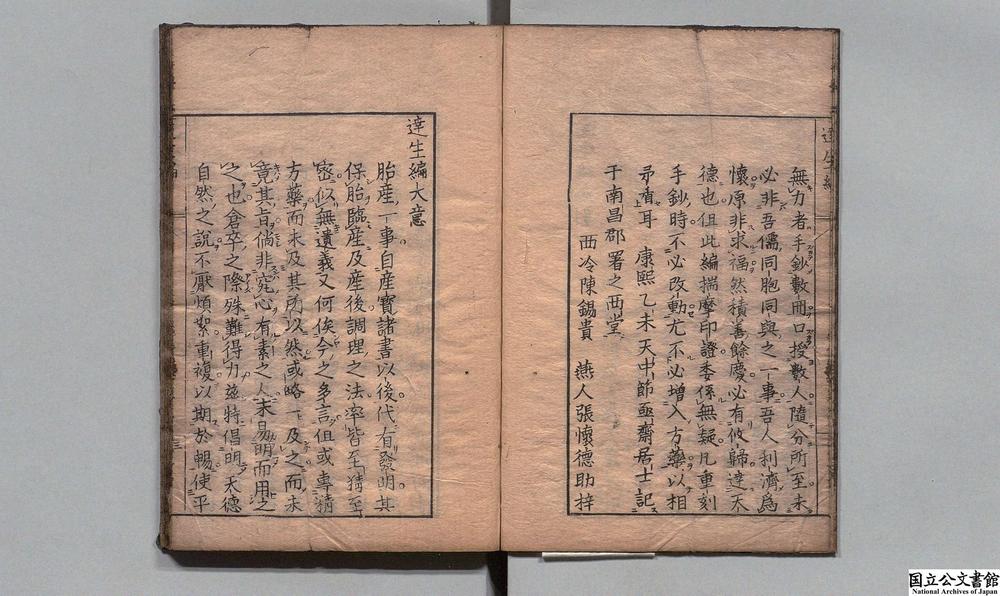 無力者手鈔數冊口授數人隨分所至未
必非吾儒同胞同與之一事吾人利濟爲
懷原非求福然積善餘慶必有攸歸達天
德也但此編揣摩印證委係無疑凡重刻
手鈔時不必改動尤不必增入方藥以相
矛盾耳 康熙乙未天中節亟齋居士記
于南昌郡署之西堂
西泠陳錫貴 燕人張懷德助梓
達生編大意
胎産一事自産寶諸書以後代有發明其
保胎臨産及産後調理之法率皆至精至
密似無遺義又何俟今之多言但或專精
方藥而未及其所以然或略一及之而未
竟其旨倘非究心有素之人未易明而用之
之也倉卒之際殊難得力茲特倡明天德
自然之說不厭煩絮重複以期於暢使平
国立公文書館
National Archives of Japan